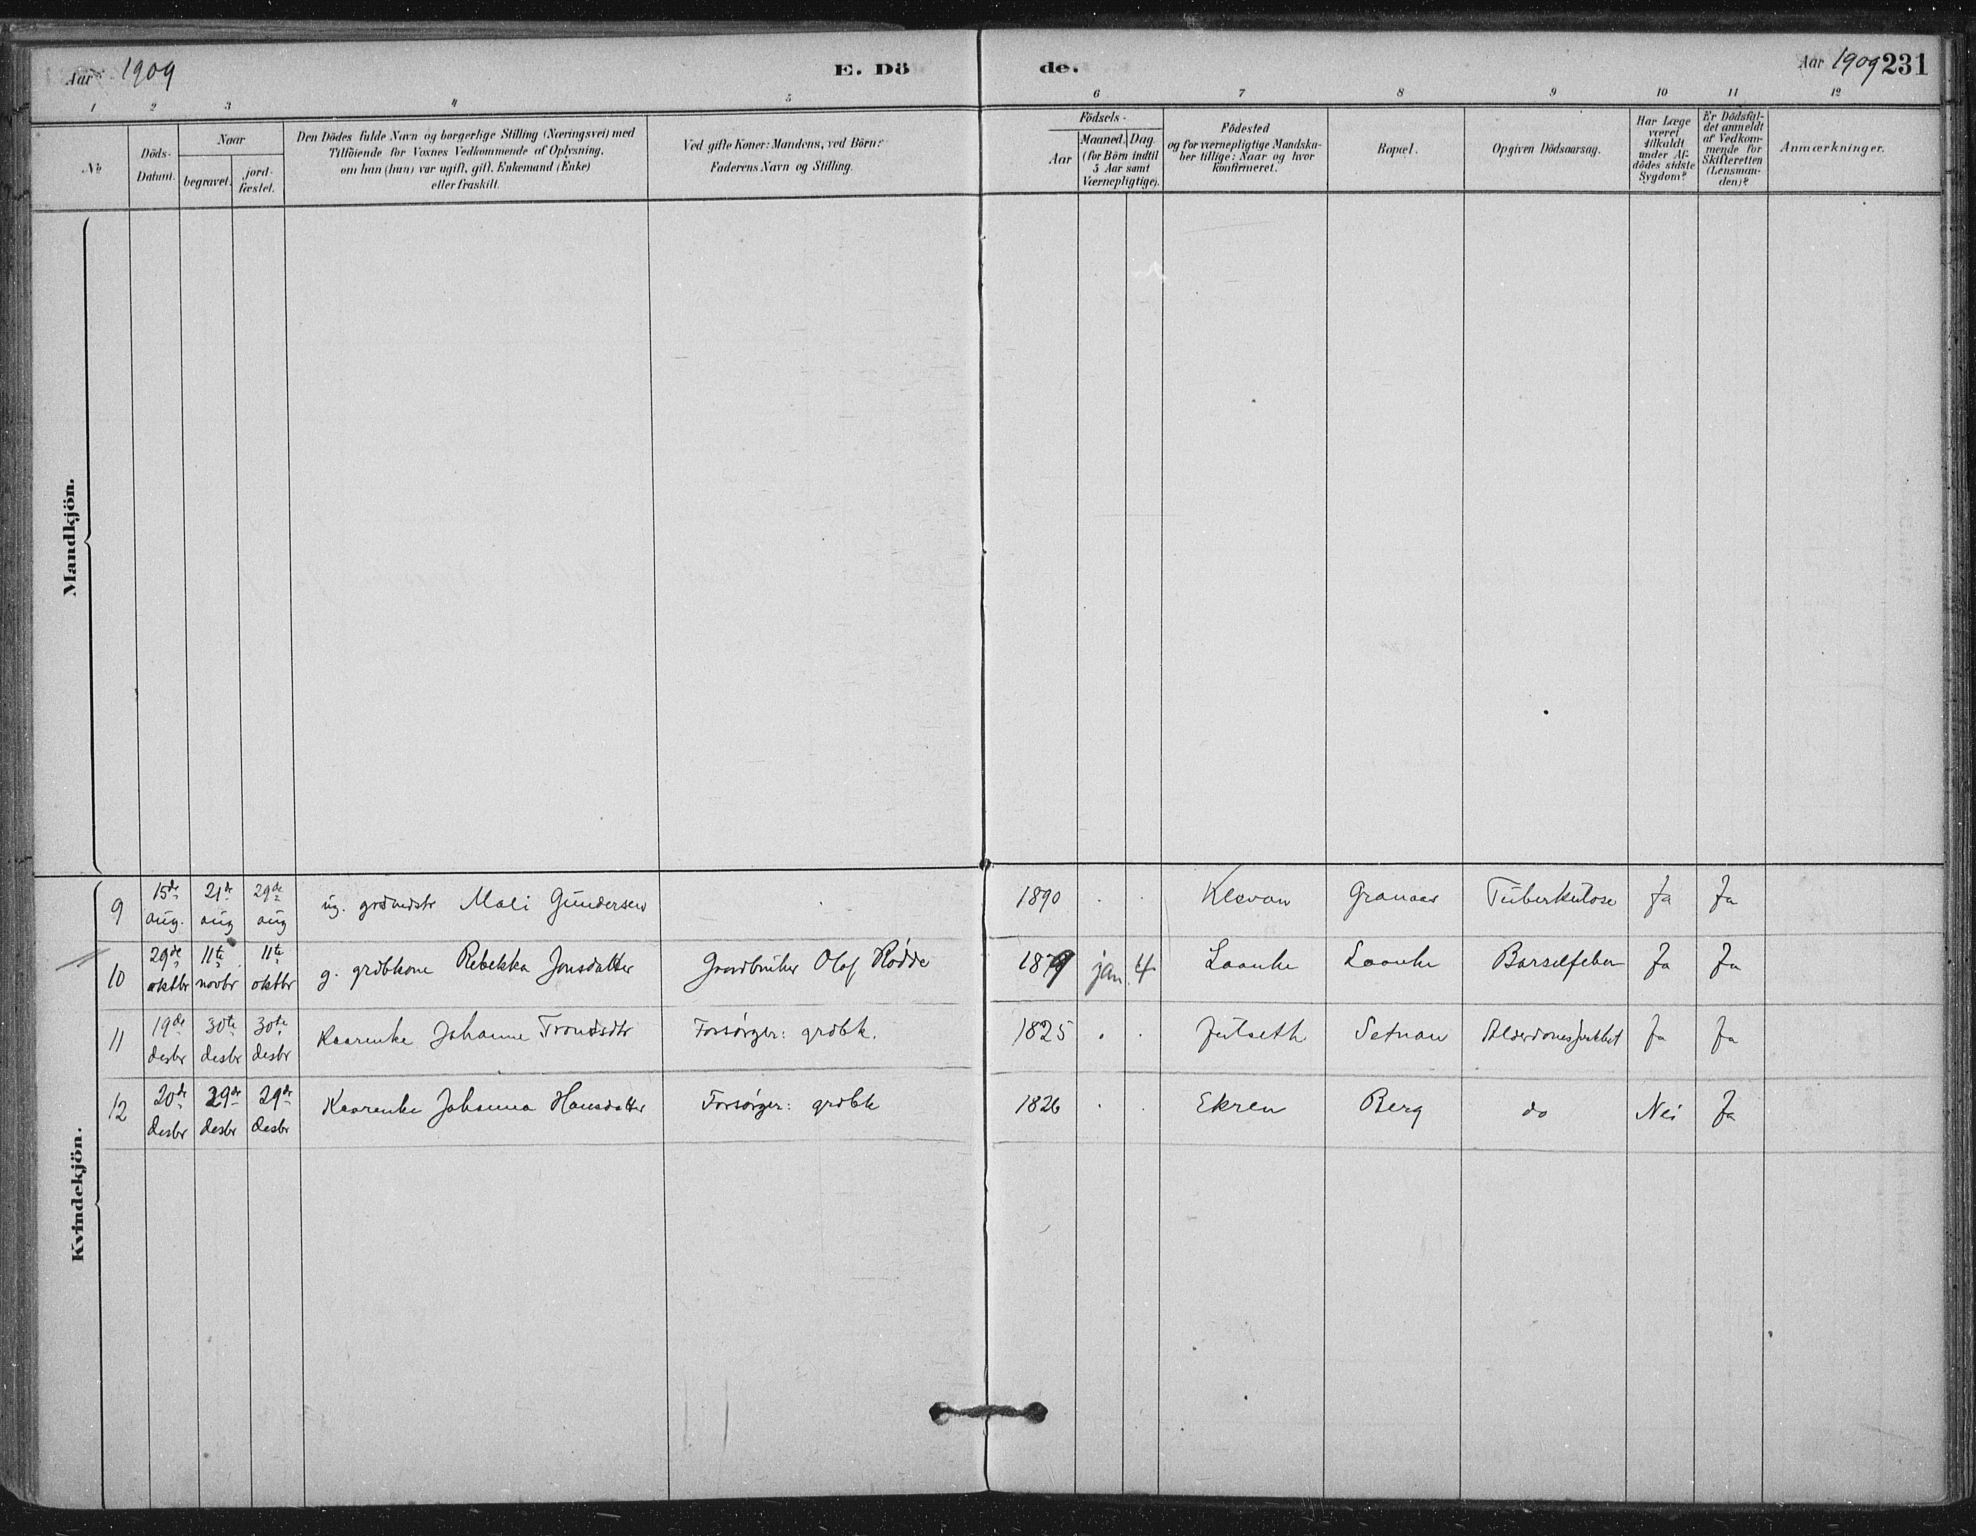 Aar 1909 E. Dö de. Aar 1909 231
1 2 3 4 5 6 7 8 9 10 11 12
No
Döds-
Datum.
Naar
begravet. jord-
fæstet.
Den Dödes fulde Navn og borgerlige Stilling (Næringsvei) med
Tilföiende for Voxnes Vedkommende af Oplysning,
om han (hun) var ugift, gift, Enkemand (Enke)
eller fraskilt.
Ved gifte Koner: Mandens, ved Börn:
Faderens Navn og Stilling.
Födsels-
Aar
Maaned. Dag.
(for Börn indtil
5 Aar samt
Værnepligtige).
Födested
og for værnepligtige Mandska-
ber tillige: Naar og hvor
konfirmeret.
Bopæl.
Opgiven Dödsaarsag.
Har Læge
været
tilkaldt
under Af-
dödes sidste
Sygdom?
Er Dödsfal-
det anmeldt
af Vedkom-
mende for
Skifteretten
(Lensman-
den)?
Anmærkninger.
Mandkjön.
Kvindekjön.
9 15de aug. 21de aug 29de aug ug. Mali Gundersen 1890 . . Klevan Granaas Tuberkulose Ja Ja
10 29de oktbr 11te novbr 11te oktbr g. grdbkone Rebekka Jonsdatter Gardbruker Olaf Rødde 1879 jan. 4 Laanke Laanke Barselfeber Ja Ja
11 19de desbr 30te desbr 30te desbr Kaarenke Johanne Trondsdtr Forsørger: grdbk. 1825 . . Julseth Setnan Ja Ja
12 20de desbr 29de desbr 29de desbr Kaarenke Johanna Hansdatter Forsørger: grdbk 1826 . . Ekren Berg do Nei Ja